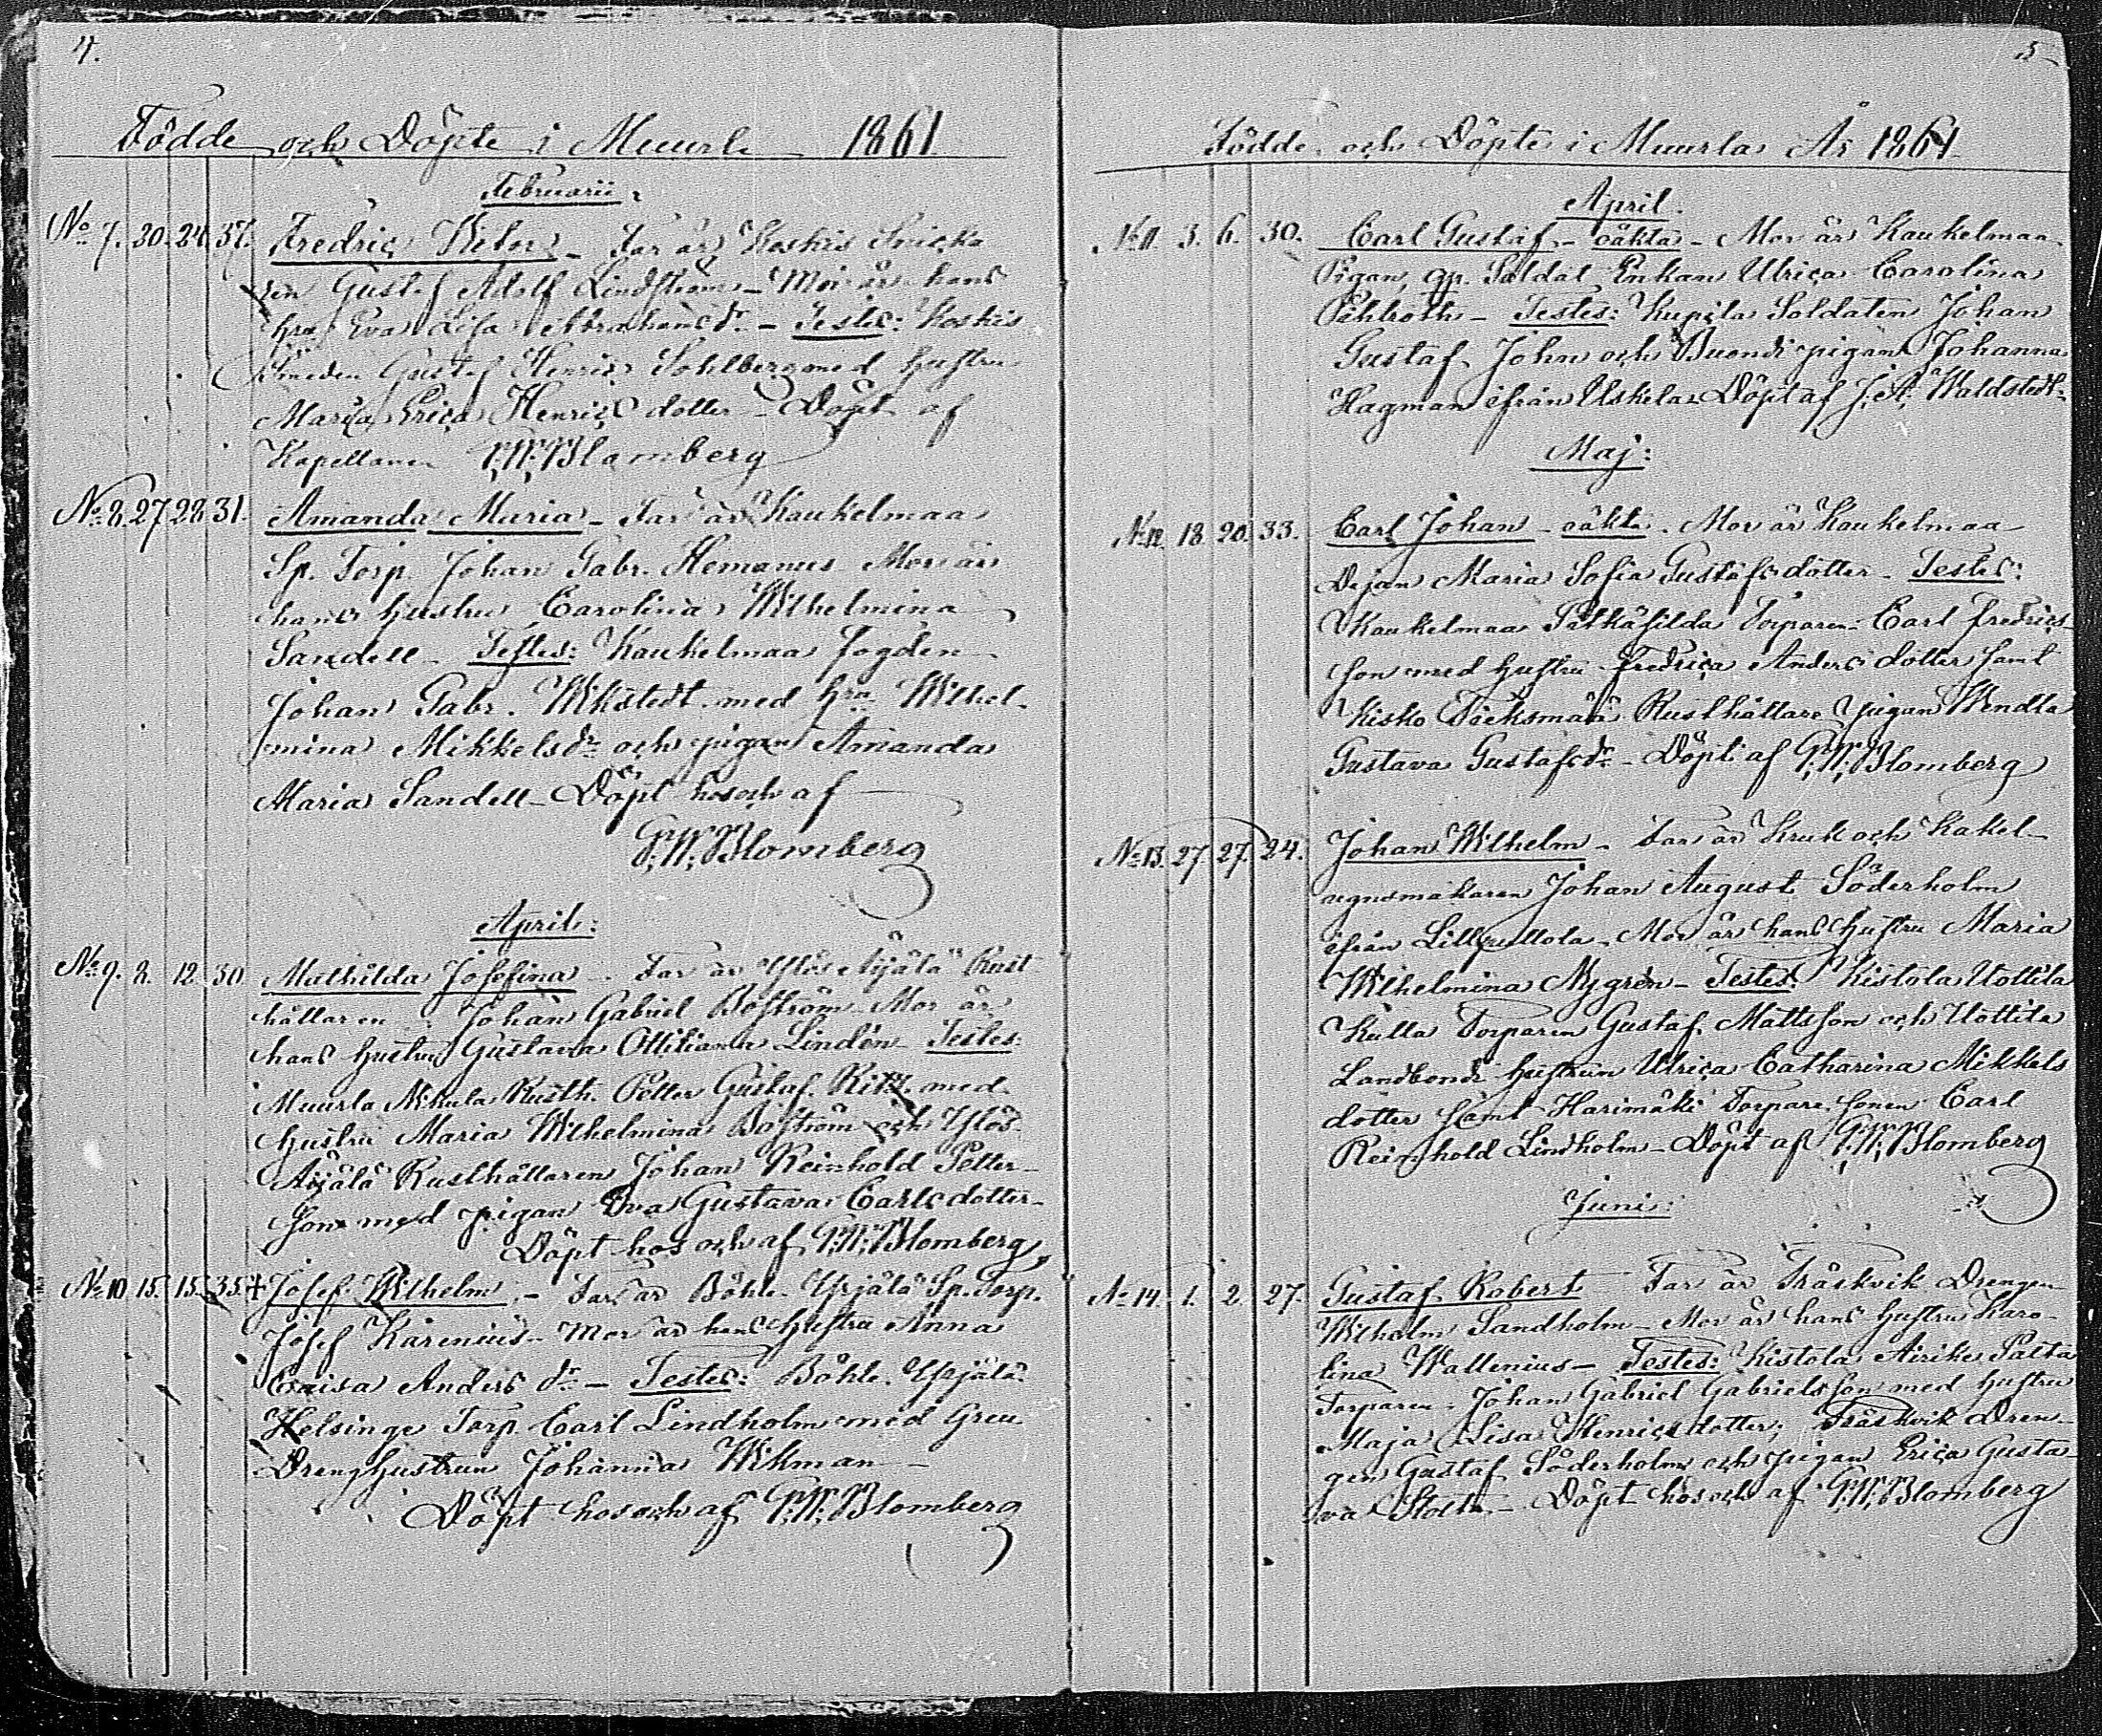 4.
Födde och Döpte i Muurla 1861
Februarii
No 7. 20. 24. 37. Fredric Victor - Far är Koskis Snicka
ren Gustaf Adolf Lindström - Mor är hans
hru Eva Lisa Abrahamsdr - Testes: Koskis
Smeden Gustaf Henric Sohlberg med hustru
Maria Erica Henricsdotter - Döpt af
Kapellanen G:W:Blomberg
No 8. 27. 28. 31. Amanda Maria - Far är Kaukelmaa
Sp. Torp. Johan Gabr. Hemanus - Mor är
hans hustru Carolina Wilhelmina
Sandell - Testes: Kaukelmaa fogden
Johan Gabr. Wikstedt med hru Wilhel-
mina Mikkelsdr och pigan Amanda
Maria Sandell - Döpt hos och af
G:W:Blomberg
April:
No 9. 8. 12. 30 Mathilda Josefina - Far är Ylös Äijälä Rust
hållaren Johan Gabriel Boström - Mor är
hans hustru Gustava Ottiliana Lindén - Testes:
Muurla Nikula Rusth. Petter Gustaf Ritz med
hustru Maria Wilhelmina Boström och Ylös
Äijälä Rusthållaren Johan Reinhold Petter-
son med pigan Eva Gustava Carlsdotter -
Döpt hos och af G:W:Blomberg
No 10 15. 15. 35. + Josef Wilhelm - Far är Böhle Yrjälä Sp. Torp.
Josef Karenius - Mor är hans hustru Anna
Caisa Andersdr - Testes: Böhle Yrjälä
Helsinge Torp. Carl Lindholm med
Drenghustrun Johanna Wikman -
Döpt hos och af G:W:Blomberg
5
Födde och Döpte i Muurla År 1861
April.
No 11 3. 6. 30. Carl Gustaf - oäkta - Mor är Kaukelmaa
Pigan, Soldat Enkan Ulrica Carolina
Pihlroth - Testes: Kupila Soldaten Johan
Gustaf John och pigan Johanna
Hagman ifrån Uskela - Döpt af J. A. Waldstedt
Maj:
No 12. 18. 20. 33. Carl Johan - oäkta - Mor är Kaukelmaa
Dejan Maria Sofia Gustafsdotter - Testes:
Kaukelmaa Torparen Carl Fredrics-
son med hustru Fredrica Andersdotter samt
Kisko Rusthållare pigan Wendla
Gustava Gustafsdr - Döpt af G:W:Blomberg
No 13. 27. 27. 24. Johan Wilhelm - Far är Kruk och Kakel-
ugnsmakaren Johan August Söderholm
ifrån - Mor är hans hustru Maria
Wilhelmina Nygrén - Testes: Kistola Uottila
Kulla Torparen Gustaf Mattsson och Uottila
Landbonde hustrun Ulrica Catharina Mikkels
dotter samt Harimäki Torpare sonen Carl
Reinhold Lindholm - Döpt af G:W:Blomberg
Juni:
No 14. 1. 2. 27. Gustaf Robert Far är Träskvik Drengen
Wilhelm Sandholm - Mor är hans hustru Karo-
lina Wallenius - Testes: Kistola Airike
Torparen Johan Gabriel Gabrielsson med hustru
Maja Lisa Henricsdotter; Träskvik Dren-
gen Gustaf Söderholm och pigan Erica Gusta-
va - Döpt hos och af G:W:Blomberg